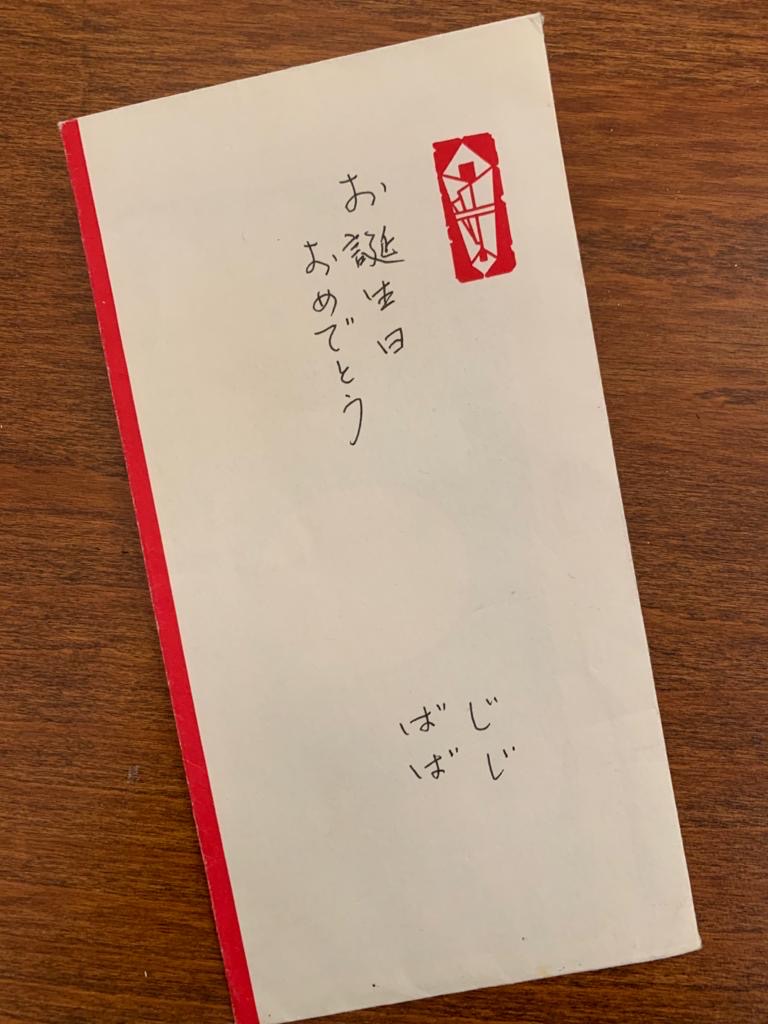 お誕生日
おめでとう
じじ
ばば